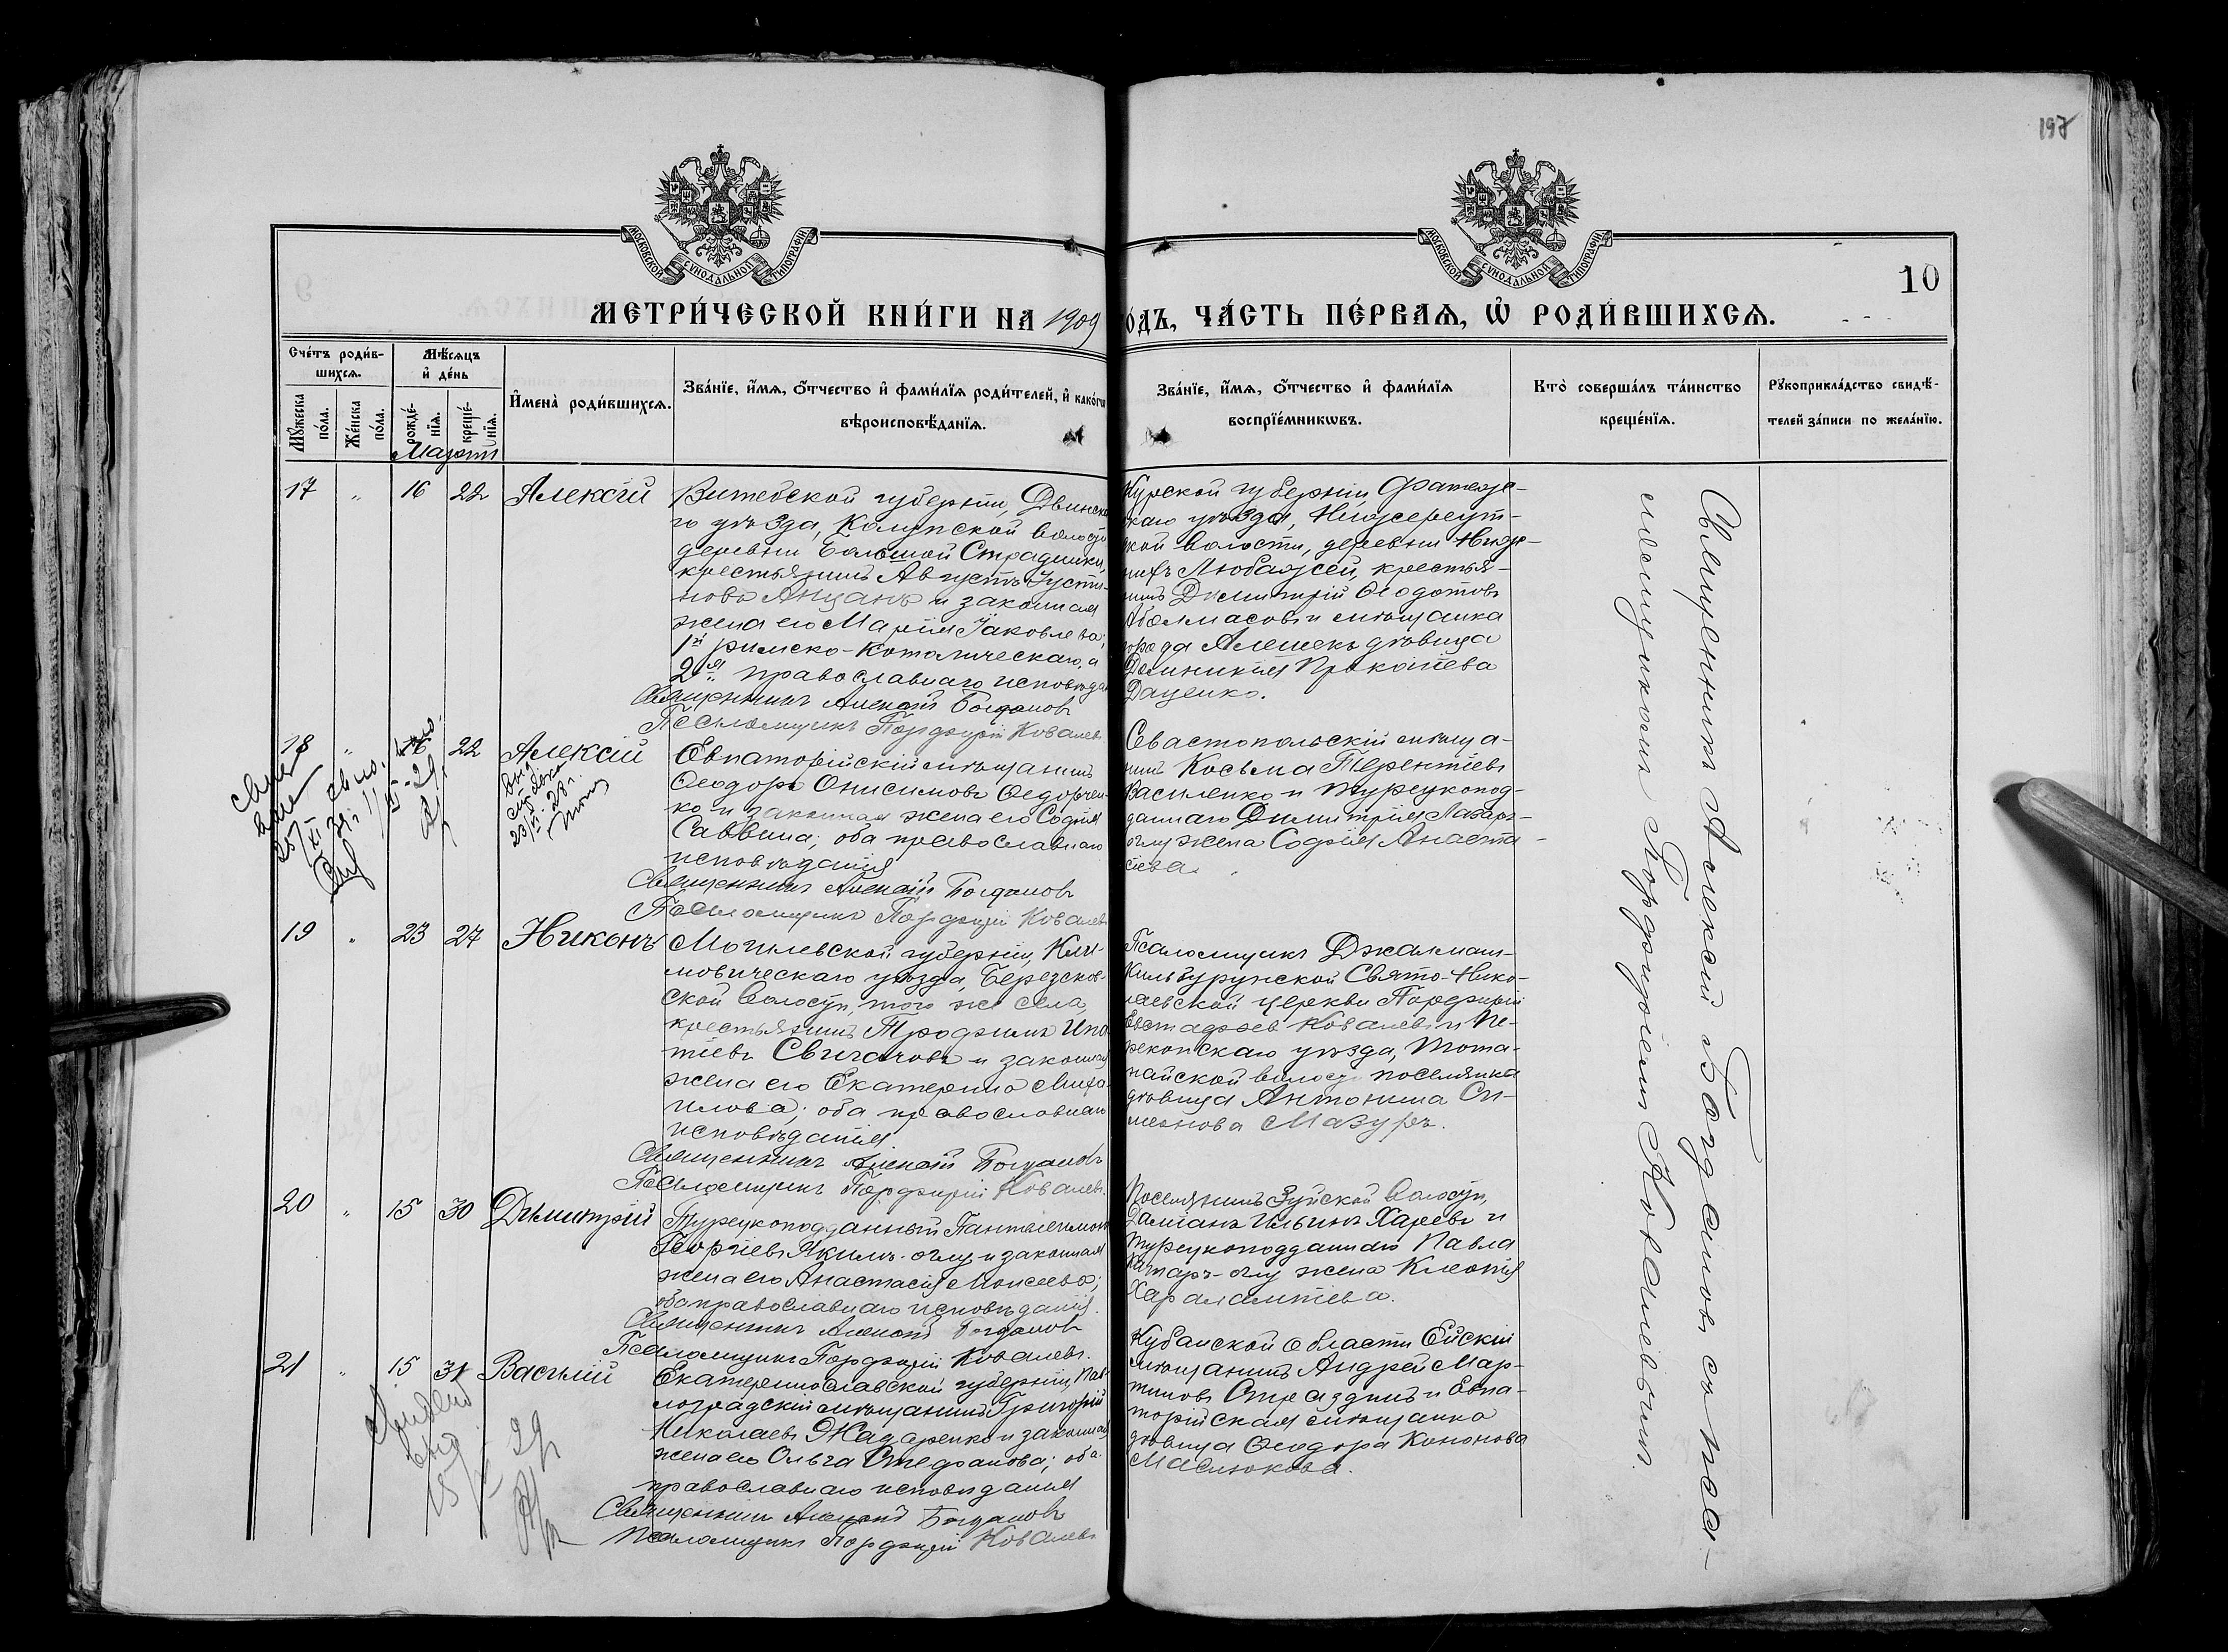 197
МОСКОВСКОЙ СѴНОДАЛЬНОЙ ТИПОГРАФІИ
МОСКОВСКОЙ СѴНОДАЛЬНОЙ ТИПОГРАФІИ
10
МЕТРИ́ЧЕСКОЙ КНИ́ГИ НА 1909
ОДЪ, ЧА́СТЬ ПЕ́РВАѦ, Ѡ҆ РОДИ́ВШИХСѦ.
Сче́тъ роди́в-
шихсѧ.
Мꙋ́жеска по́ла.
Же́нска по́ла.
Мѣ́сѧцъ
и҆ де́нь
рожде́-
нїѧ.
креще́-
нїѧ.
Мартъ
И҆мена̀ роди́вшихсѧ.
Зва́нїе, и҆́мѧ, ѻ҆́тчество и҆ фами́лїѧ роди́телей, и҆ како́гѡ
вѣроисповѣ́данїѧ.
Зва́нїе, и҆́мѧ, ѻ҆́тчество и҆ фами́лїѧ
воспрїе́мникѡвъ.
Кто̀ соверша́лъ та́инство
креще́нїѧ.
Рꙋкоприкла́дство свидѣ́-
телей за́писи по жела́нїю.
17 " 16 22 Алексій
Витебской губерніи, Двинска
го уѣзда, Колупской волости
деревни Большой Страдишки,
крестьянинъ Августъ Усти-
новъ Анцанъ и законная
жена его Марія Іаковлева;
1й римско-католическаго, а
2я православнаго исповѣда
Священникъ Алексій Богдановъ
Псаломщикъ Порфирій Ковалевъ
Курской губерніи, Фатеж-
скаго уѣзда, Нижнереут-
ской волости, деревни Ниж-
нихъ Любажей, крестья-
нинъ Димитрій Ѳеодотовъ
Аболмасовъ и мѣщанка
города Алешекъ дѣвица
Домникія Прокопіева
Даценко.
18 " 16 22 Алексій
Евпаторійскій мѣщанинъ
Ѳеодоръ Онисимовъ Ѳедорчен-
ко и законная жена его Софія
Саввина; оба православнаго
исповѣданія
Священникъ Алексій Богдановъ
Псаломщикъ Порфирій Ковалевъ
Севастопольскій мѣща-
нинъ Косьма Терентіевъ
Василенко и турецкопод-
даннаго Димитрія Лазарь-
оглу жена Софія Анаста-
сіева.
19 " 23 27 Никонъ
Могилевской губерніи, Кли-
мовическаго уѣзда, Березков-
ской волости, того же села,
крестьянинъ Трофимъ Ипа
тіевъ Свигачовъ и законная
жена его Екатерина Миха-
илова; оба православнаго
исповѣданія
Священникъ Алексій Богдановъ
Псаломщикъ Порфирій Ковалевъ.
Псаломщикъ Джалман-
Кильбурунской Свято-Нико-
лаевской церкви Порфирій
Евстафіев Ковалевъ и Пе-
рекопскаго уѣзда, Тота-
найской волости поселянка
дѣвица Антонина Си-
меонова Мазуръ.
20 " 15 30 Димитрій
Турецкоподданный Пантелеимонъ
Георгіевъ Якимъ-оглу и законная
жена его Анастасія Моисеева;
оба православнаго исповѣданія.
Священникъ Алексій Богдановъ
Псаломщикъ Порфирій Ковалевъ.
Поселянинъ Зуйской волости,
Даміанъ Ильинъ Харевъ и
турецкоподданнаго Павла
жена
Харалампіева.
21 " 15 31 Василій
Екатеринославской губерніи, Пав-
лоградскій мѣщанинъ Григорій
Николаевъ Жадаренко и законная
жена его Ольга Стефанова; оба
православнаго исповѣданія
Священникъ Алексій Богдановъ
Псаломщикъ Порфирій Ковалевъ
Кубанской области Ейскій
мѣщанинъ Андрей Мар-
тиновъ и Евпа-
торійская мѣщанка
дѣвица Ѳеодора Кононова
Маслюкова.
Священникъ Алексій Богдановъ съ псал-
ломщикомъ Порфиріемъ Ковалевымъ.